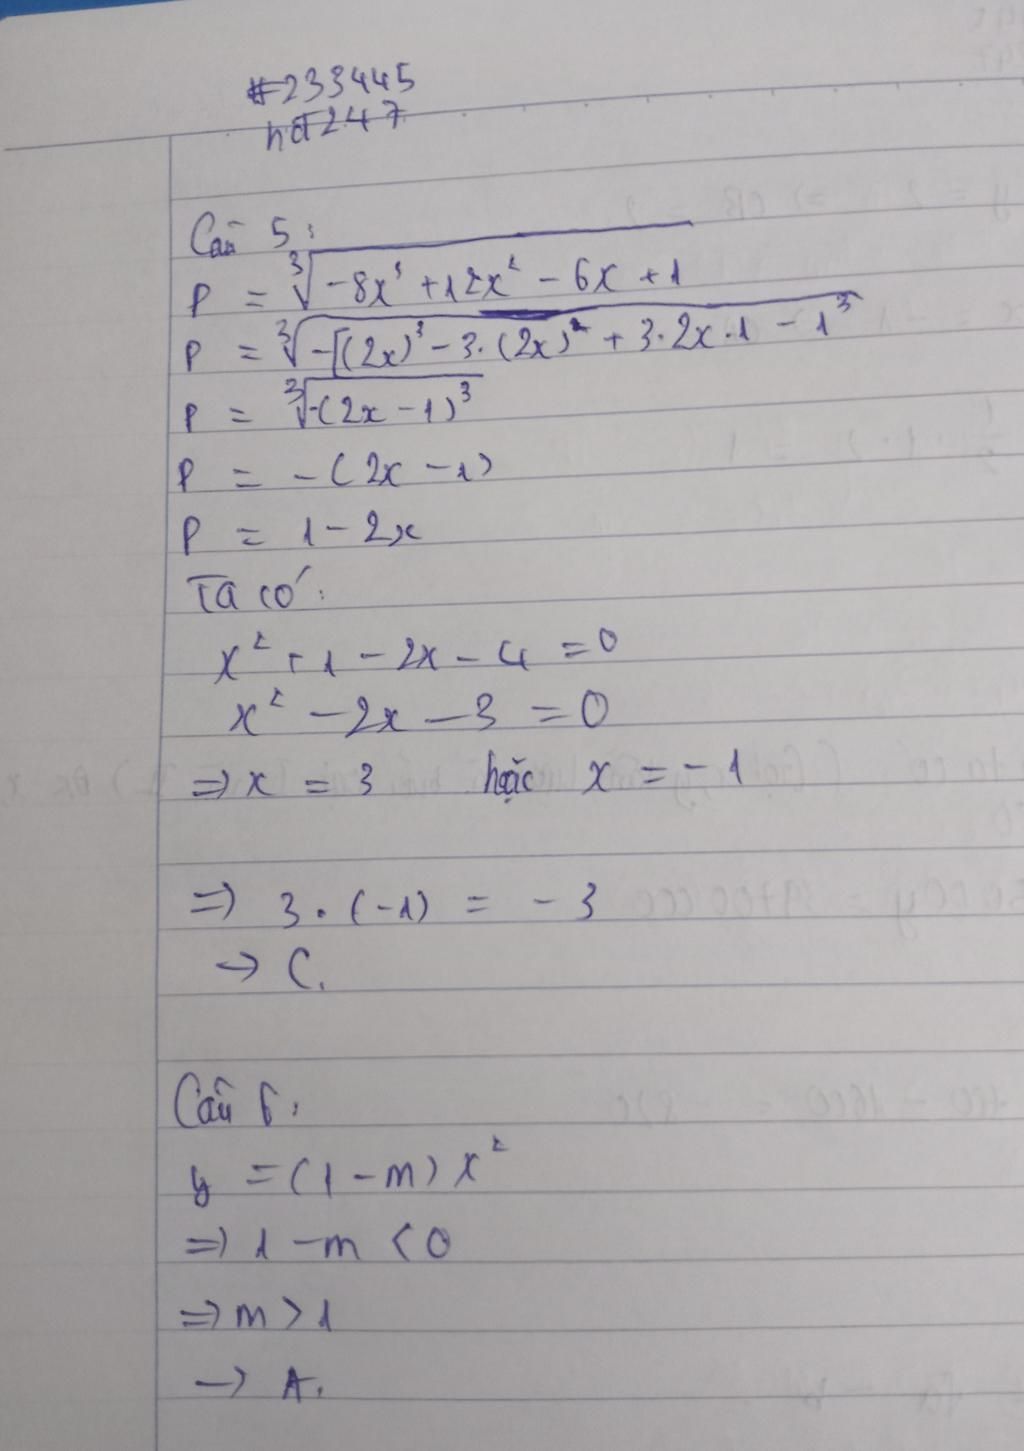 #233445
hd247
Câu 5:
P = ∛(-8x³ + 12x² - 6x + 1
P = ∛(-[(2x)³ - 3.(2x)² + 3.2x.1 - 1³
P = ∛(-(2x - 1)³
P = -(2x - 1)
P = 1 - 2x
Ta có:
x² + 1 - 2x - 4 = 0
x² - 2x - 3 = 0
=> x = 3 hoặc x = -1
=> 3.(-1) = -3
→ C.
Câu 6:
y = (1 - m)x²
=> 1 - m < 0
=> m > 1
→ A.